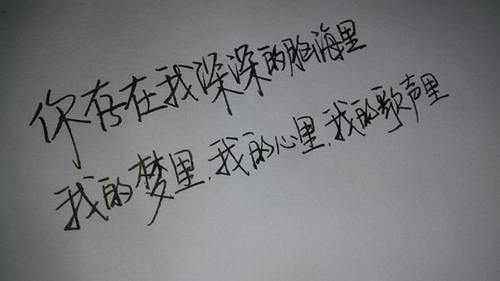 你存在我深深的脑海里
我的梦里,我的心里,我的歌声里